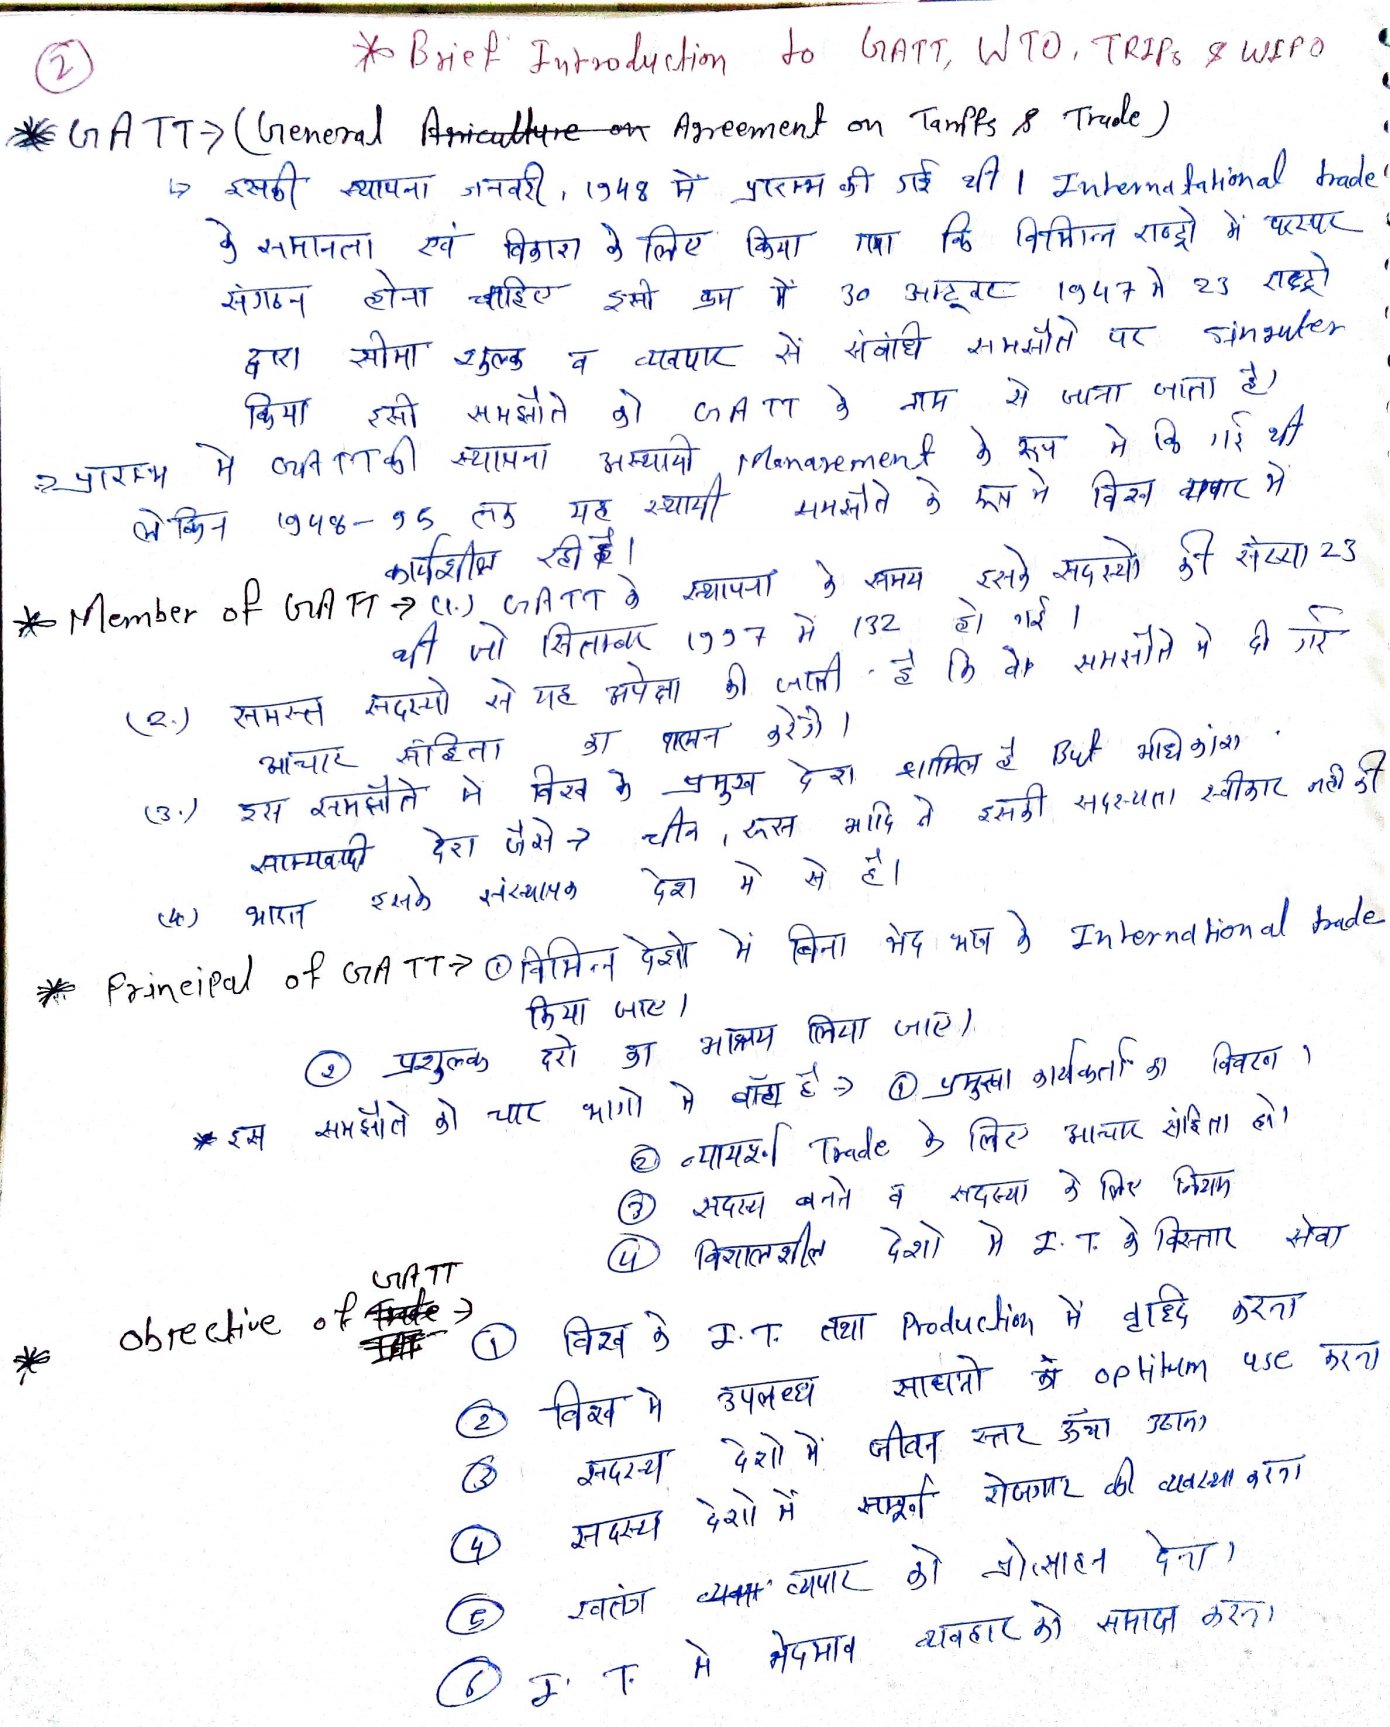 2
* Brief Introduction to GATT, WTO, TRIPs & WIPO
* GATT → (General Agriculture on Agreement on Tariffs & Trade)
↳ इसकी स्थापना जनवरी, 1948 में प्रारम्भ की गई थी। International trade
के समानता एवं विकाश के लिए किया गया कि विभिन्न राष्ट्रो में परस्पर
संगठन होना चाहिए इसी क्रम में 30 अक्टूबर 1947 मे 23 राष्ट्रो
द्वारा सीमा शुल्क व व्यवपार सें संबांधि समझौते पर
किया इसी समझौते को GATT के नाम से जाना जाता है।
→ प्रारम्भ मे GATT की स्थापना अस्थायी Management के रूप मे कि गई थी
लेकिन 1948-95 तक यह स्थायी समझौते के रूप मे विश्व व्यापार में
कार्यशील रही है।
* Member of GATT → (1.) GATT के स्थापना के समय इसके सदस्यो की संख्या 23
थी जो सितम्बर 1997 में 132 हो गई।
(2.) समस्त सदस्यो से यह अपेक्षा की जाती है कि वे समझौते मे दी गई
आचार संहिता का पालन करेंगे।
(3.) इस समझौते मे विश्व के प्रमुख देश शामिल है But अधिकांश
साम्यवादी देश जैसे → चीन, रूस आदि ने इसकी सदस्यता स्वीकार नही की
(4.) भारत इसके संस्थापक देश मे से है।
* Principal of GATT → ① विभिन्न देशो में बिना भेद भाव के International trade
किया जाए।
② प्रशुल्क दरो का आश्रय लिया जाए।
* इस समझौते को चार भागो मे बाँटा है → ① प्रमुख कार्यकर्ता का विवरण।
② न्यायपूर्ण Trade के लिए आचार संहिता हो।
③ सदस्य बनने व सदस्या के लिए नियम
④ विशालशील देशो मे I.T. के विस्तार सेवा
* Objective of GATT →
① विश्व के I.T. तथा Production में वृद्दि करना
② विश्व मे उपलब्ध साधनो के optimum use करना
③ सदस्य देशो में जीवन स्तर ऊँचा उठाना
④ सदस्य देशो में सम्पूर्ण रोजगार की व्यवस्था करना
⑤ स्वतंत्र व्यापार को प्रोत्साहन देना।
⑥ I. T. मे भेदभाव व्यवहार को समाप्त करना।